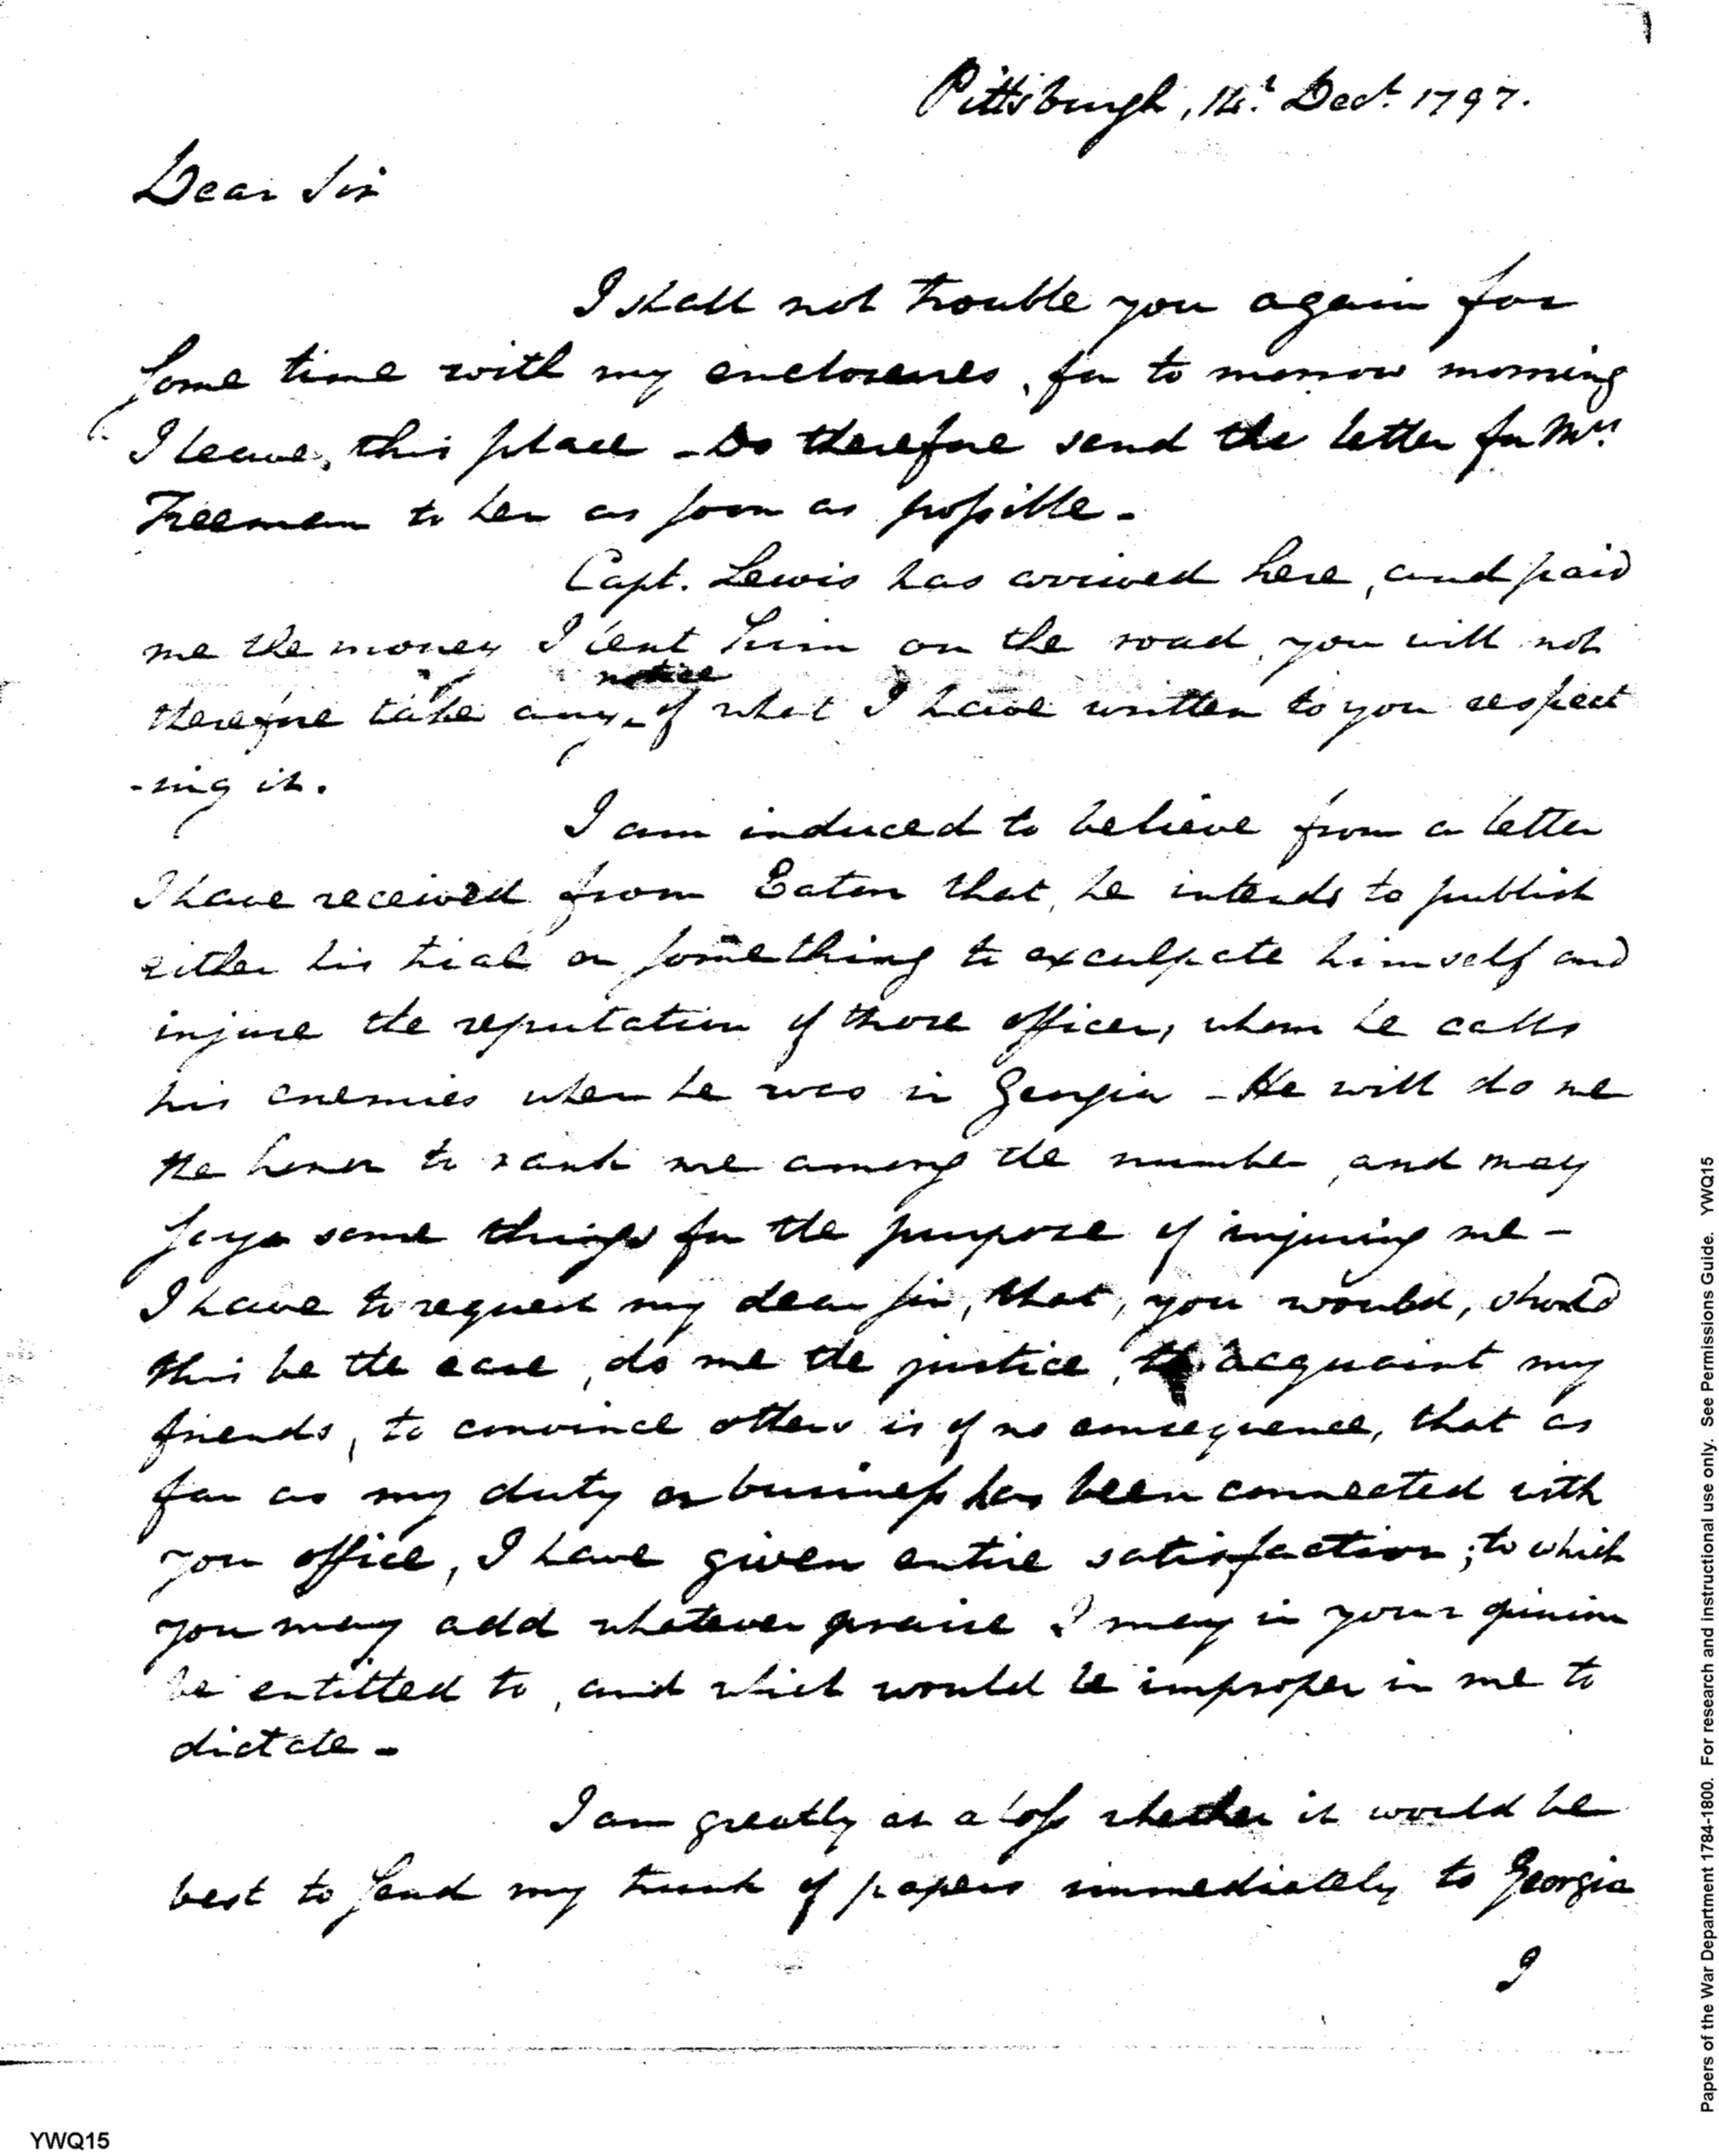 Pittsburgh, 14.t Dect. 1797.
Dear Sir
I shall not trouble you again for
some time with my enclosures, for to morrow morning
I leave, this place - Do therefore send the letter for Mrs.
Freeman to her as soon as possible -
Capt. Lewis has arrived here, and paid
me the money I lent him on the road, you will not
notice
therefore take any of what I have written to you respect
-ing it.
I am induced to believe from a letter
I have received from Eaton that, he intends to publish
either his trial or something to exculpate himself and
injure the reputation of those officers, whom he calls
his enemies when he was in Georgia - He will do me
the honor to rank me among the number, and may
some things for the purpose of injuring me -
I have to request my dear sir, that, you would, should
this be the case, do me the justice, to acquaint my
friends, to convince others is of no consequence, that as
far as my duty or business has been connected with
you office, I have given entire satisfaction; to which
you may add whatever praise I may in your opinion
be entitled to, and which would be improper in me to
dictate -
I am greatly at a loss whether it would be
best to send my trunk of papers immediately to Georgia
I
Papers of the War Department 1784-1800. For research and instructional use only. See Permissions Guide. YWQ15
YWQ15